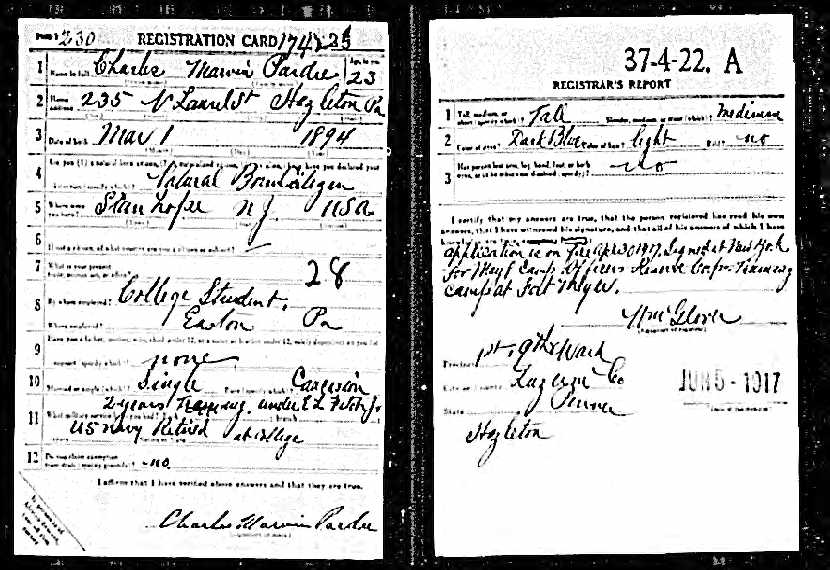 Form 1 230 REGISTRATION CARD 174
1 Name in full Charles Marvin Pardee Age, in yrs. 23
2 Home address 235 N Laurel St Hazleton Pa
3 Date of birth May 1 1894
4 Are you (1) a natural born citizen,
Natural Born Citizen
5 Where were you born? Stanhope NJ USA
6 If not a citizen, of what country are you a citizen or subject?
7 What is your present trade, occupation, or office? 28
8 By whom employed? College Student.
Where employed? Easton Pa
9 Have you a father, mother, wife, child under 12, or a sister or brother under 12, solely dependent on you for
support (specify which)? none
10 Married or single (which)? Single Race (specify which)? Caucasian
11 2 years Training. under
US Navy Retired at college
12 Do you claim exemption from draft (specify grounds)? no
I affirm that I have verified above answers and that they are true.
Charles Marvin Pardee
37-4-22. A
REGISTRAR'S REPORT
1 Tall, medium, or short (specify which)? Tall Slender, medium, or stout (which)? Medium
2 Color of eyes? Dark Blue Color of hair? light Bald? no
3 Has person lost arm, leg, hand, foot, or both
no
I certify that my answers are true, that the person registered has read his own
answers, that I have witnessed his signature, and that all of his answers of which I have
application is on File Apr 30 1917. Signed at New York
for May 8 Camp. Officers Reserve Corps Training
camp at Fort Niagara.
Wm Glover
Precinct 1st. 9th Ward
City or County Luzerne Co
State Penna
JUN 5 - 1917
Hazleton